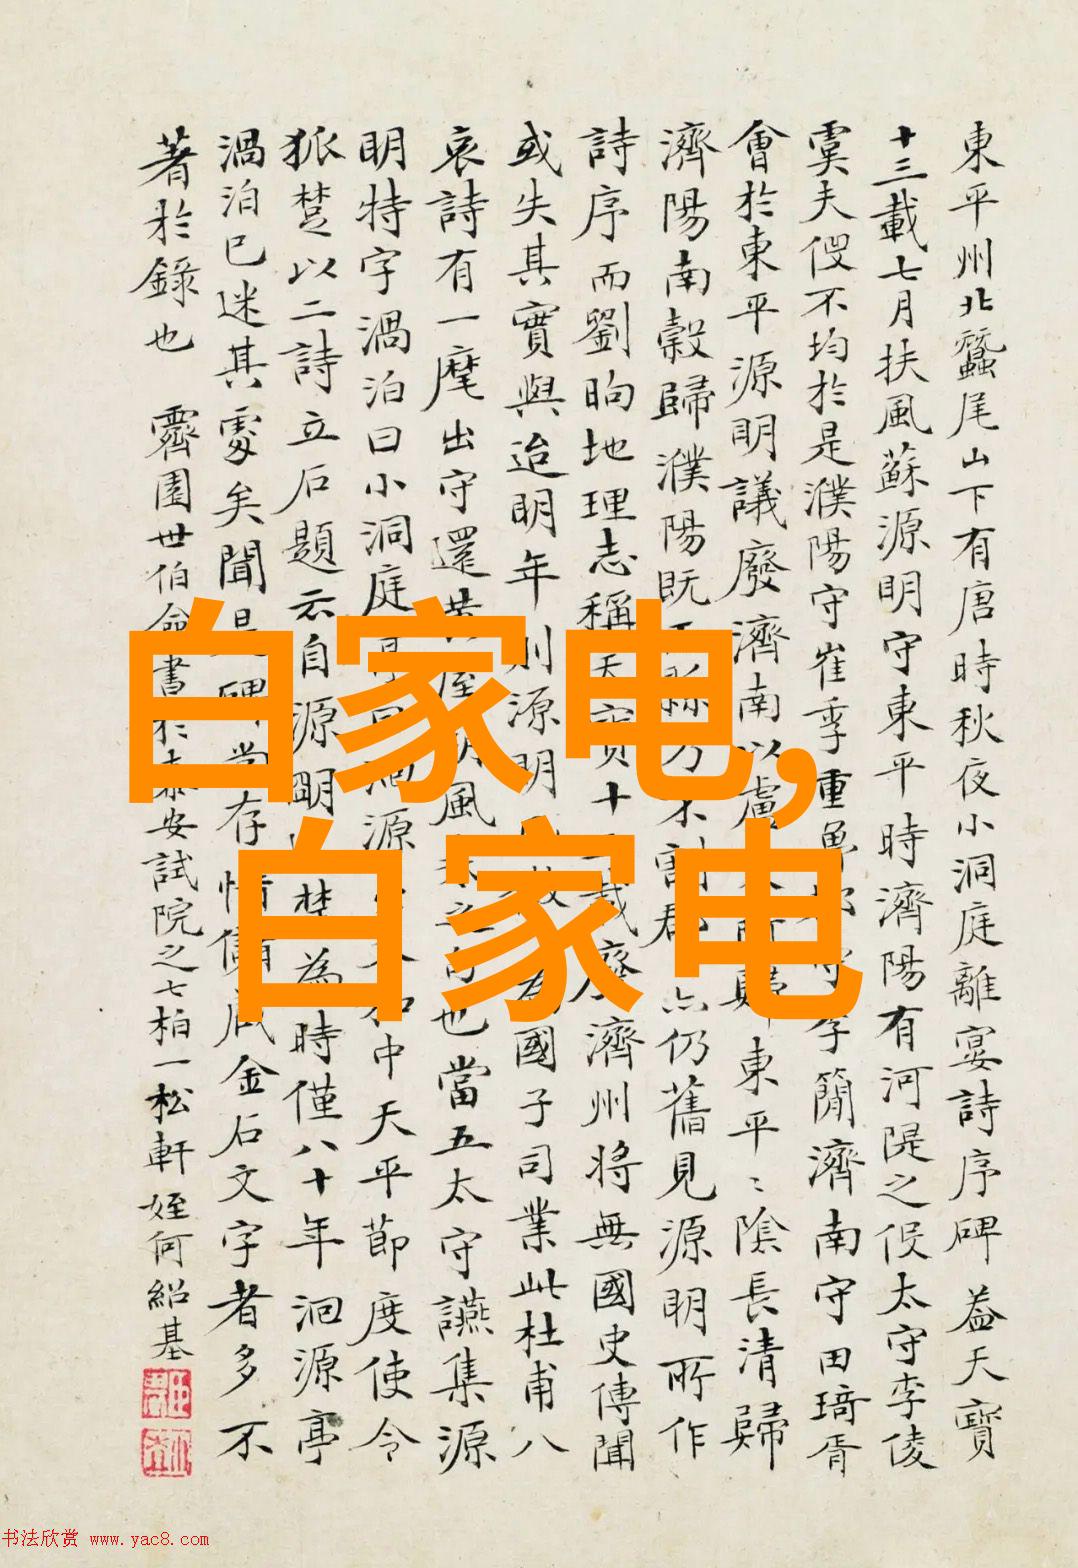 東平州北蠶尾山下有唐時秋夜小洞庭離宴詩序碑 葢天寶
十三載七月扶風蘇源明守東平時濟陽有河隄之役太守李倰
虞夫役不均於是濮陽守崔季重魯 守李簡濟南守田琦胥
會於東平源明議廢濟南以盧 歸東平〻陰長清歸
濟陽南穀歸濮陽既 不割郡 仍舊見源明所作
詩序而劉昫地理志稱天寶十 載廢濟州將無國史傳聞
或失其實與迨明年則源明 國子司業此杜甫八
哀詩有一麾出守還黃屋朔風 也當五太守讌集源
明特字渦泊曰小洞庭 洄源 和中天平節度使令
狐楚以二詩立石題云自源明 楚為時僅八十年洄源亭
渦泊已迷其處矣聞是碑尚存惜儲藏金石文字者多不
著於錄也 霽園世伯命書於泰安試院之七柏一松軒 姪何紹基
白家电,
白家电
书法欣赏 www.yac8.com